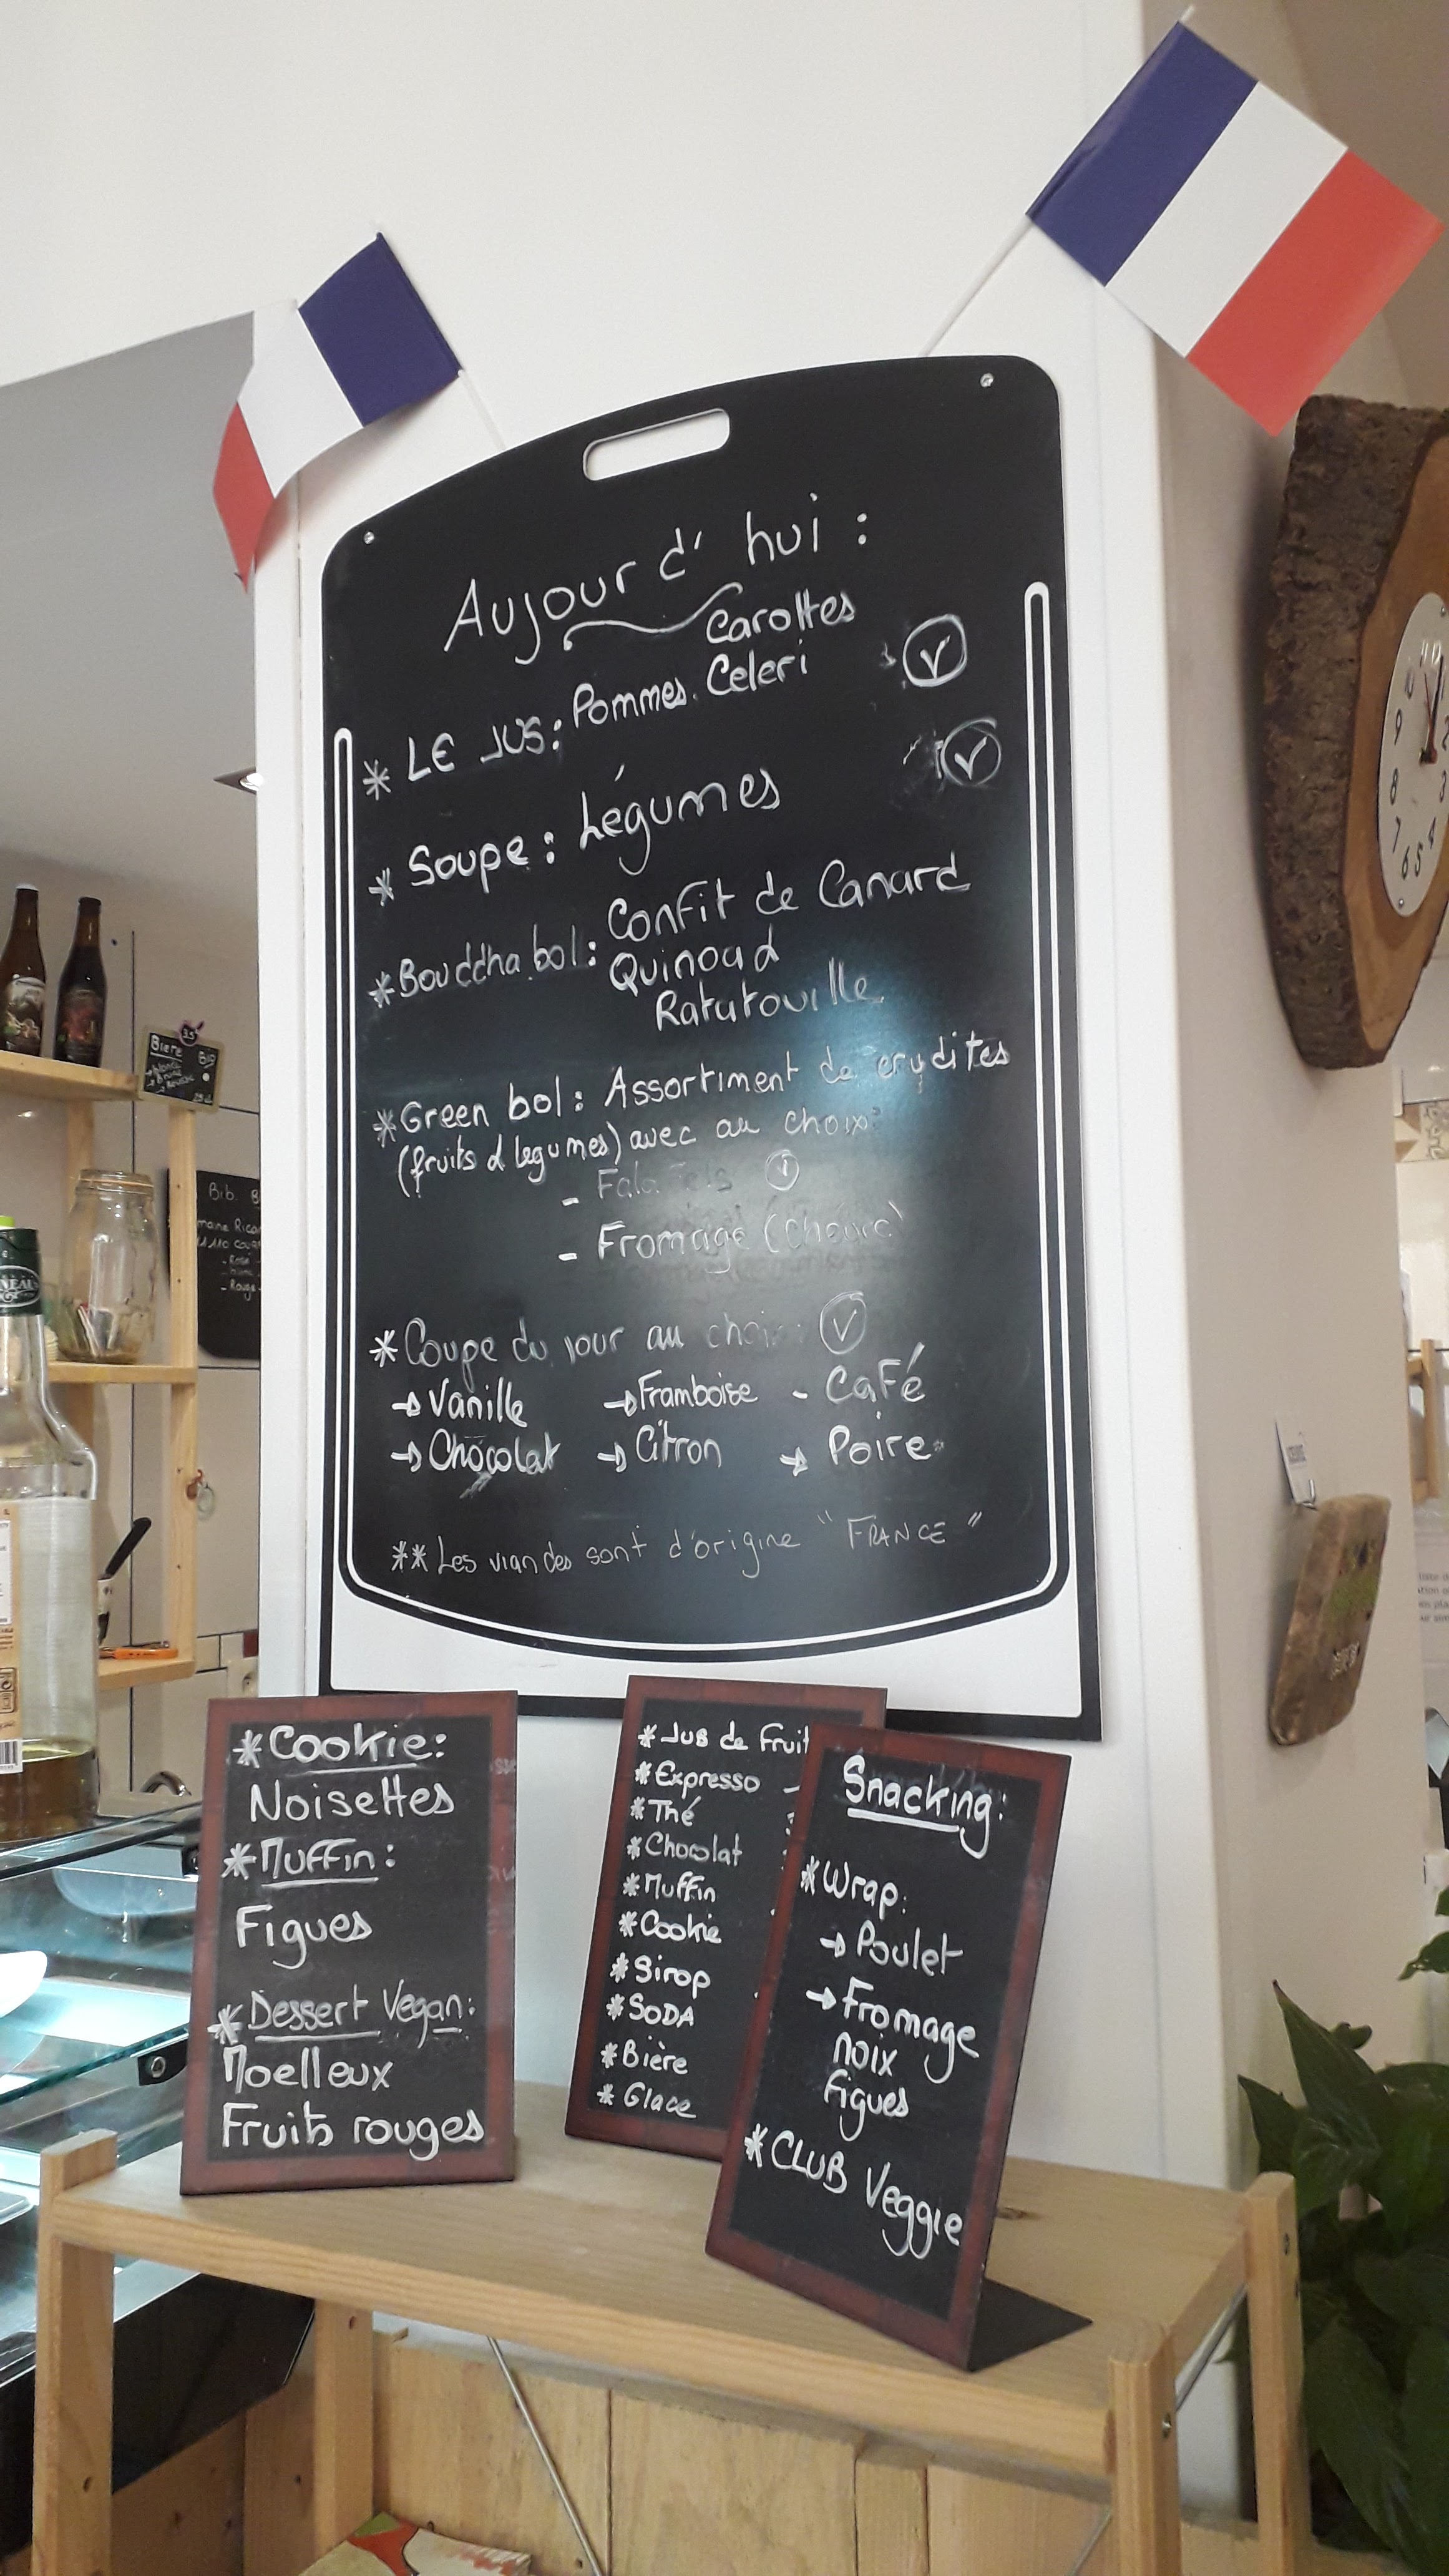 Aujourd'hui :
Carottes
* LE JUS: Pommes. Celeri
* Soupe : Légumes
* Bouddha bol : Confit de Canard
Quinoa d
Ratatouille
* Green bol : Assortiment de crudites
(fruits d legumes) avec au choix:
- Fromage (Chèvre)
* Coupe du jour au choix :
→ Vanille → Framboise - CaFé
→ Chocolat → Citron → Poire
** Les viandes sont d'origine "FRANCE"
* Cookie:
Noisettes
* Muffin :
Figues
* Dessert Vegan:
Moelleux
Fruits rouges
* Jus de Fruit
* Expresso
* Thé
* Chocolat
* Muffin
* Cookie
* Sirop
* SODA
* Bière
* Glace
Snacking:
* Wrap:
→ Poulet
→ Fromage
Noix
Figues
* CLUB Veggie
Biere Bio
Bib.
- Rosé
- Rouge
9
8
7
6
5
4
3
2